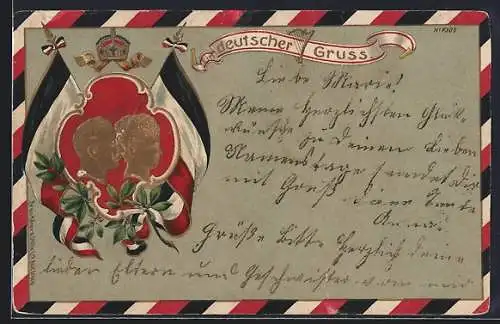 deutscher Gruss
Liebe Marie!
Meine herzlichsten Glück-
wünsche zu Deinem lieben
Namenstage sendet Dir
mit Gruß Deine
Anna.
Grüße bitte herzlich Deine
lieben Eltern und Geschwister von mir